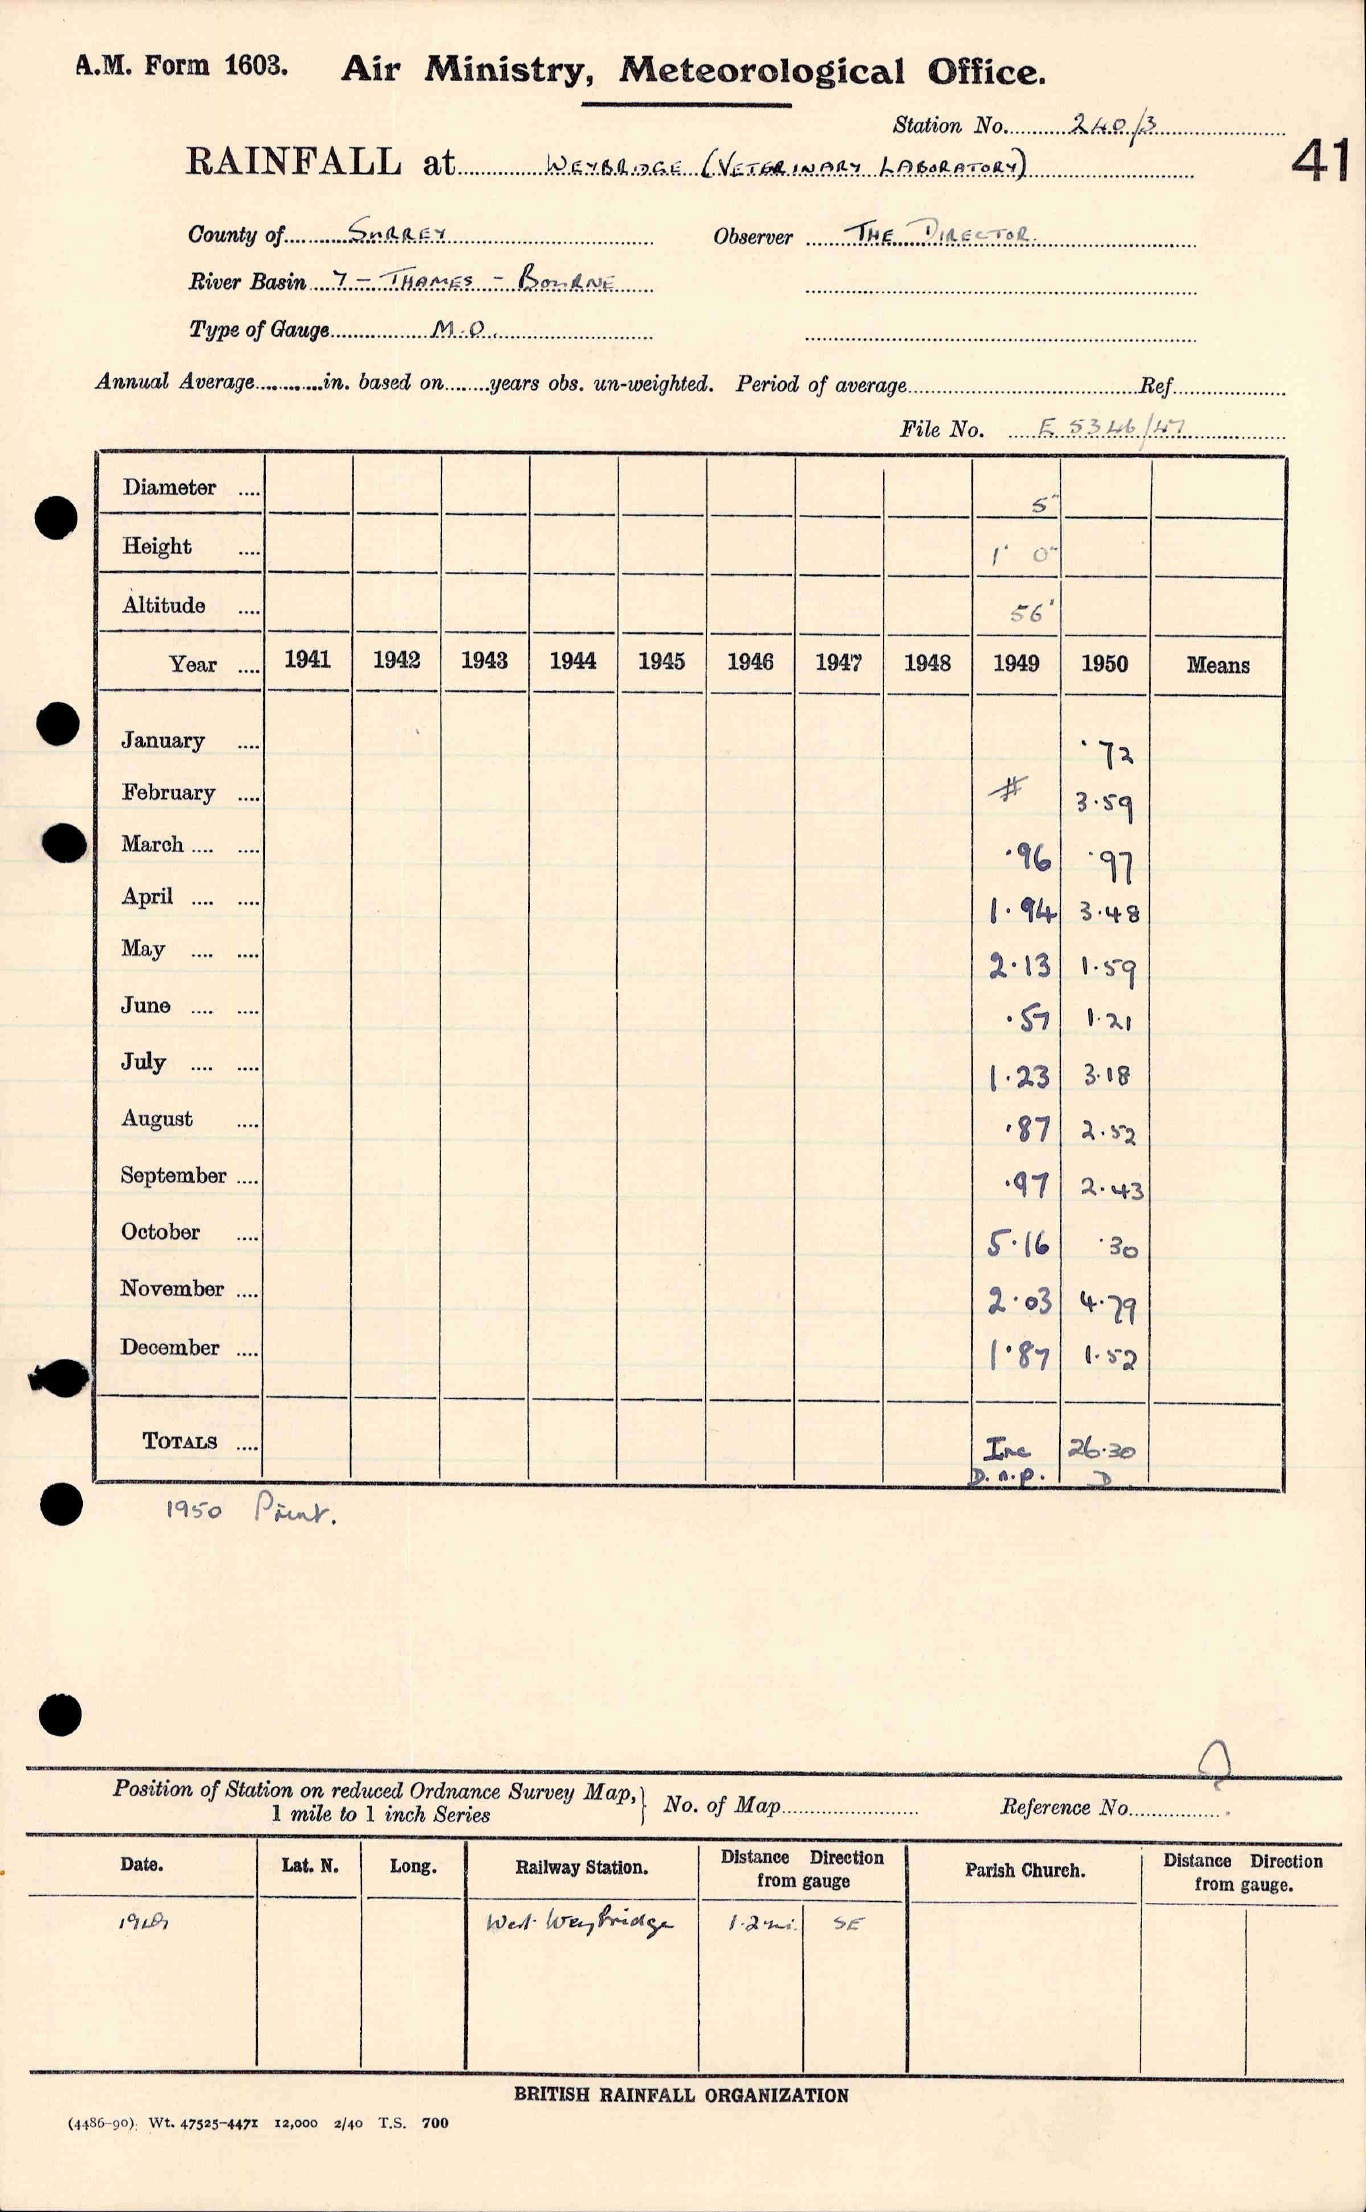 A.M. Form 1603. Air Ministry, Meteorological Office.
Station No. 240/3
41
RAINFALL at WEYBRIDGE (VETERINARY LABORATORY)
County of SURREY Observer THE DIRECTOR.
River Basin 7 – THAMES – BOURNE
Type of Gauge M.O.
Annual Average in. based on years obs. un-weighted. Period of average Ref
File No. E 5346/47
Diameter 5"
Height 1' 0"
Altitude 56'
Year 1941 1942 1943 1944 1945 1946 1947 1948 1949 1950 Means
January ·72
February # 3·59
March ·96 ·97
April 1·94 3·48
May 2·13 1·59
June ·57 1·21
July 1·23 3·18
August ·87 2·52
September ·97 2·43
October 5·16 ·30
November 2·03 4·79
December 1·87 1·52
TOTALS Inc 26·30
D.n.p. D
1950 Print.
Position of Station on reduced Ordnance Survey Map, 1 mile to 1 inch Series } No. of Map Reference No.
Date. Lat. N. Long. Railway Station. Distance Direction from gauge Parish Church. Distance Direction from gauge.
West Weybridge 1·2 mi. SE
BRITISH RAINFALL ORGANIZATION
(4486–90) Wt. 47525–4471 12,000 2/40 T.S. 700